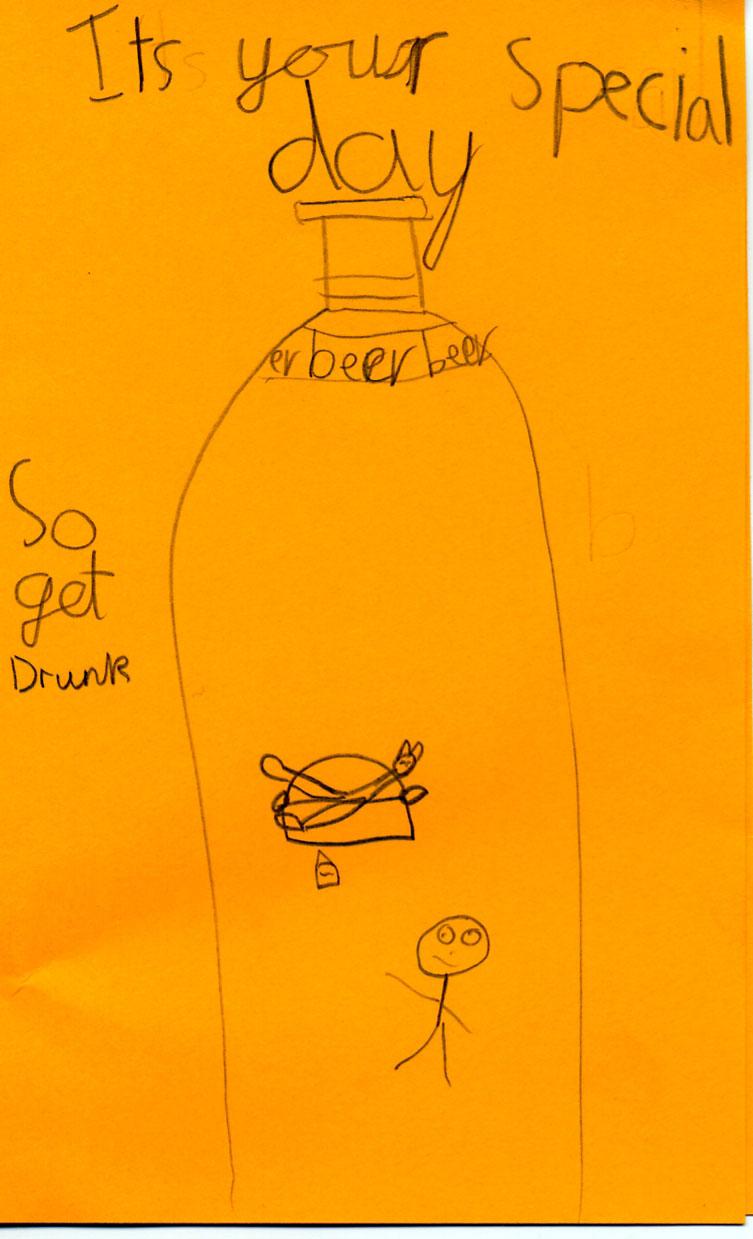 Its your special
day
er beer beer
So
get
Drunk
b